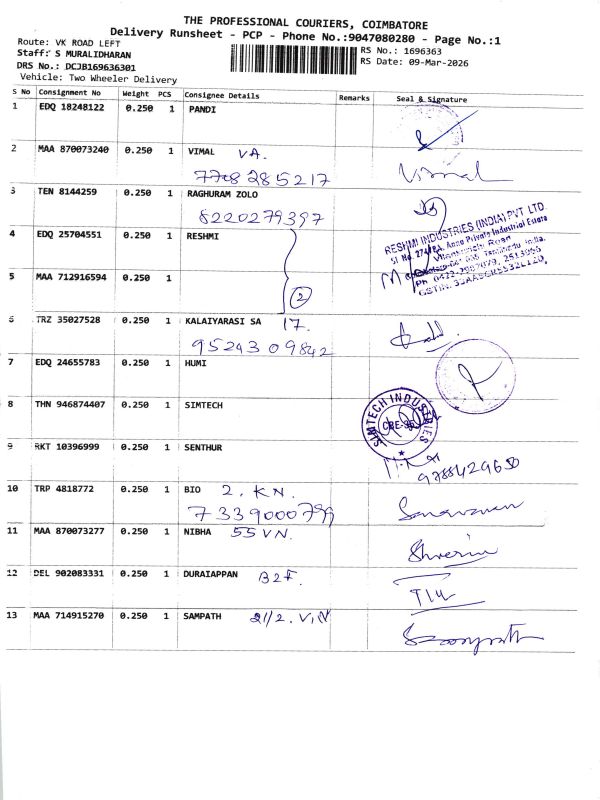 THE PROFESSIONAL COURIERS, COIMBATORE
Delivery Runsheet - PCP - Phone No.:9047080280 - Page No.:1
Route: VK ROAD LEFT
Staff: S MURALIDHARAN
DRS No.: DCJB169636301
Vehicle: Two Wheeler Delivery
RS No.: 1696363
RS Date: 09-Mar-2026
S No Consignment No Weight PCS Consignee Details Remarks Seal & Signature
1 EDQ 18248122 0.250 1 PANDI
2 MAA 870073240 0.250 1 VIMAL VA.
7708285217 Vimal
3 TEN 8144259 0.250 1 RAGHURAM ZOLO
8220279397
4 EDQ 25704551 0.250 1 RESHMI
RESHMI INDUSTRIES (INDIA) PVT. LTD.
Anna Private Industrial Estate
Vilankurichi Road
5 MAA 712916594 0.250 1
2
6 TRZ 35027528 0.250 1 KALAIYARASI SA 17.
9524309842
7 EDQ 24655783 0.250 1 HUMI
8 THN 946874407 0.250 1 SIMTECH
SIMTECH INDUSTRIES
9 RKT 10396999 0.250 1 SENTHUR
9788429650
10 TRP 4818772 0.250 1 BIO 2. KN.
7339000799 Saravanan
11 MAA 870073277 0.250 1 NIBHA 55 VN.
12 DEL 902083331 0.250 1 DURAIAPPAN B2F.
13 MAA 714915270 0.250 1 SAMPATH 21/2. V.N
Sampath